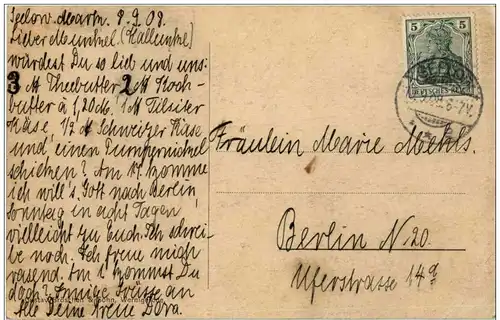 Seelow-Markt. 8.9.09.
Lieber Munkel, (Kallenke)
würdest Du so lieb und uns:
3 M Theebutter 2 M Koch-
butter à 1,20 M. 1 M Tilsiter
Käse, 1/2 M Schweizer Käse
und einen Pumpernickel
schicken? Am 17. komme
ich will's Gott nach Berlin,
Sonntag in acht Tagen
vielleicht zu Euch. Ich schrei-
be noch. Ich freue mich
rasend. Am 1. kommst Du
doch? Innige Grüsse an
Alle Deine treue Dora.
5
DEUTSCHES REICH
SEELOW
6-7V.
Fräulein Marie Mehls.
Berlin N 20.
Uferstrasse 14a